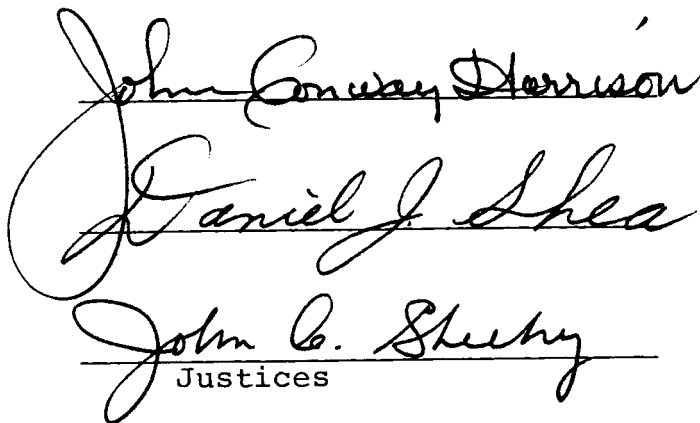 John Conway Harrison
Daniel J. Shea
John C. Sheehy
Justices